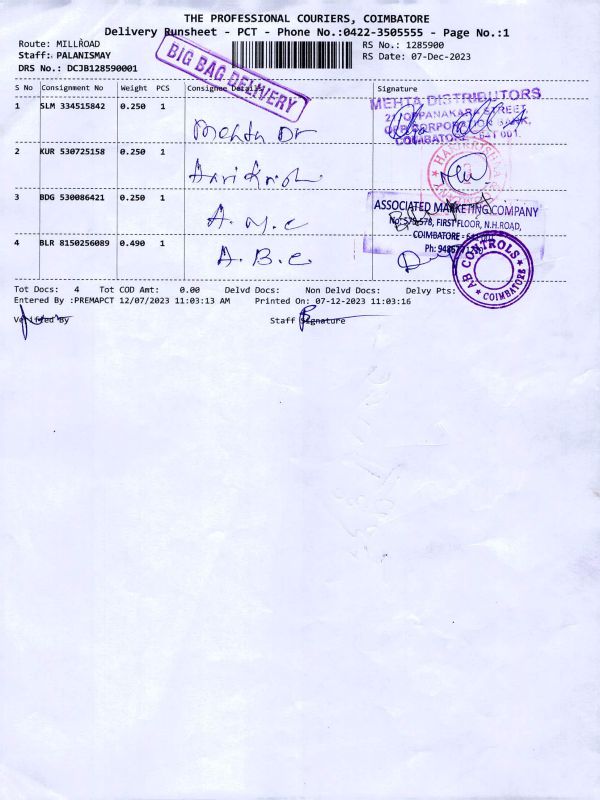 THE PROFESSIONAL COURIERS, COIMBATORE
Delivery Runsheet - PCT - Phone No.:0422-3505555 - Page No.:1
Route: MILLROAD
RS No.: 1285900
Staff: PALANISMAY
RS Date: 07-Dec-2023
DRS No.: DCJB128590001
BIG BAG DELIVERY
S No Consignment No Weight PCS Consignee Details Signature
1 SLM 334515842 0.250 1
MEHTA DISTRIBUTORS
OPPANAKARA STREET,
CORPORATION BANK,
COIMBATORE - 641 001.
Mehta Dr
2 KUR 530725158 0.250 1
Hari Krish
3 BDG 530086421 0.250 1
A.M.C
ASSOCIATED MARKETING COMPANY
No: 576-578, FIRST FLOOR, N.H.ROAD,
COIMBATORE - 641 001
4 BLR 8150256089 0.490 1
A.B.C
AB CONTROLS
COIMBATORE
Tot Docs: 4 Tot COD Amt: 0.00 Delvd Docs: Non Delvd Docs: Delvy Pts:
Entered By :PREMAPCT 12/07/2023 11:03:13 AM Printed On: 07-12-2023 11:03:16
Verified By
Staff Signature